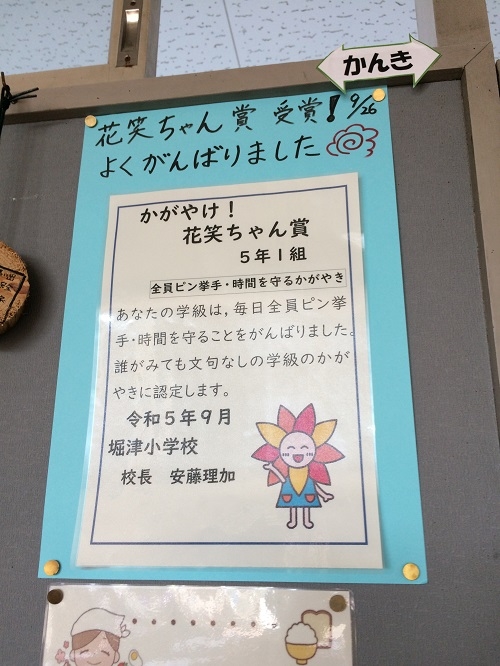 かんき
花笑ちゃん賞 受賞! 9/26
よくがんばりました
かがやけ!
花笑ちゃん賞
5年1組
全員ピン挙手・時間を守るかがやき
あなたの学級は,毎日全員ピン挙
手・時間を守ることをがんばりました。
誰がみても文句なしの学級のかが
やきに認定します。
令和5年9月
堀津小学校
校長 安藤理加